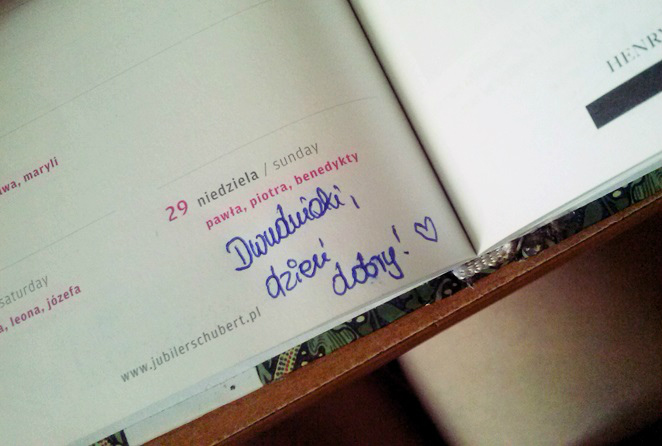 HENRY
lwa, maryli
29 niedziela / sunday
pawła, piotra, benedykty
dzień
dobry! ♡
saturday
a, leona, józefa
www.jubilerschubert.pl